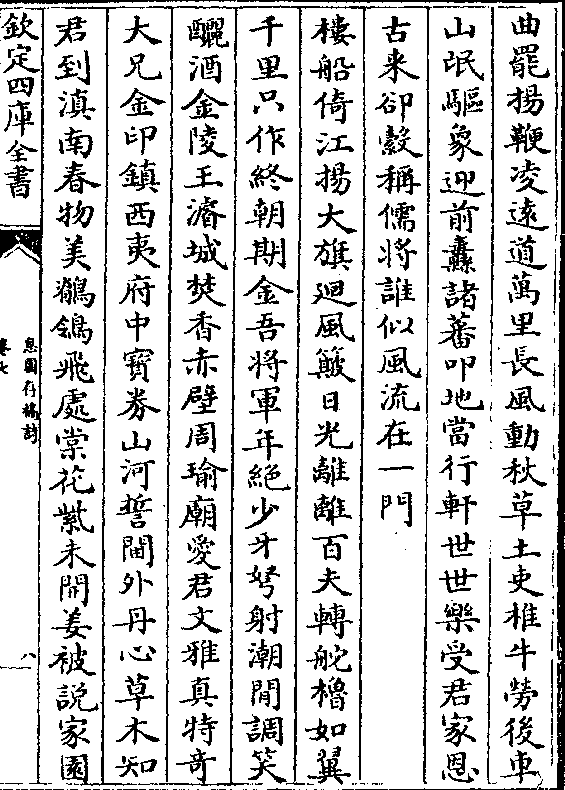 曲罷揚鞭凌遠道萬里長風動秋草土吏椎牛勞後車
山氓驅象迎前纛諸蕃叩地當行軒世世樂受君家恩
古来卻縠稱儒將誰似風流在一門
樓船倚江揚大旗廻風簸日光離離百夫轉舵櫓如翼
千里只作終朝期金吾將軍年絕少牙弩射潮閒調笑
釃酒金陵王濬城焚香赤壁周瑜廟愛君文雅真特奇
大兄金印鎮西夷府中寳券山河誓閫外丹心草木知
君到滇南春物美鶺鴒飛處棠花紫未開姜被說家園
欽定四庫全書
息園存稿詩
卷七
八